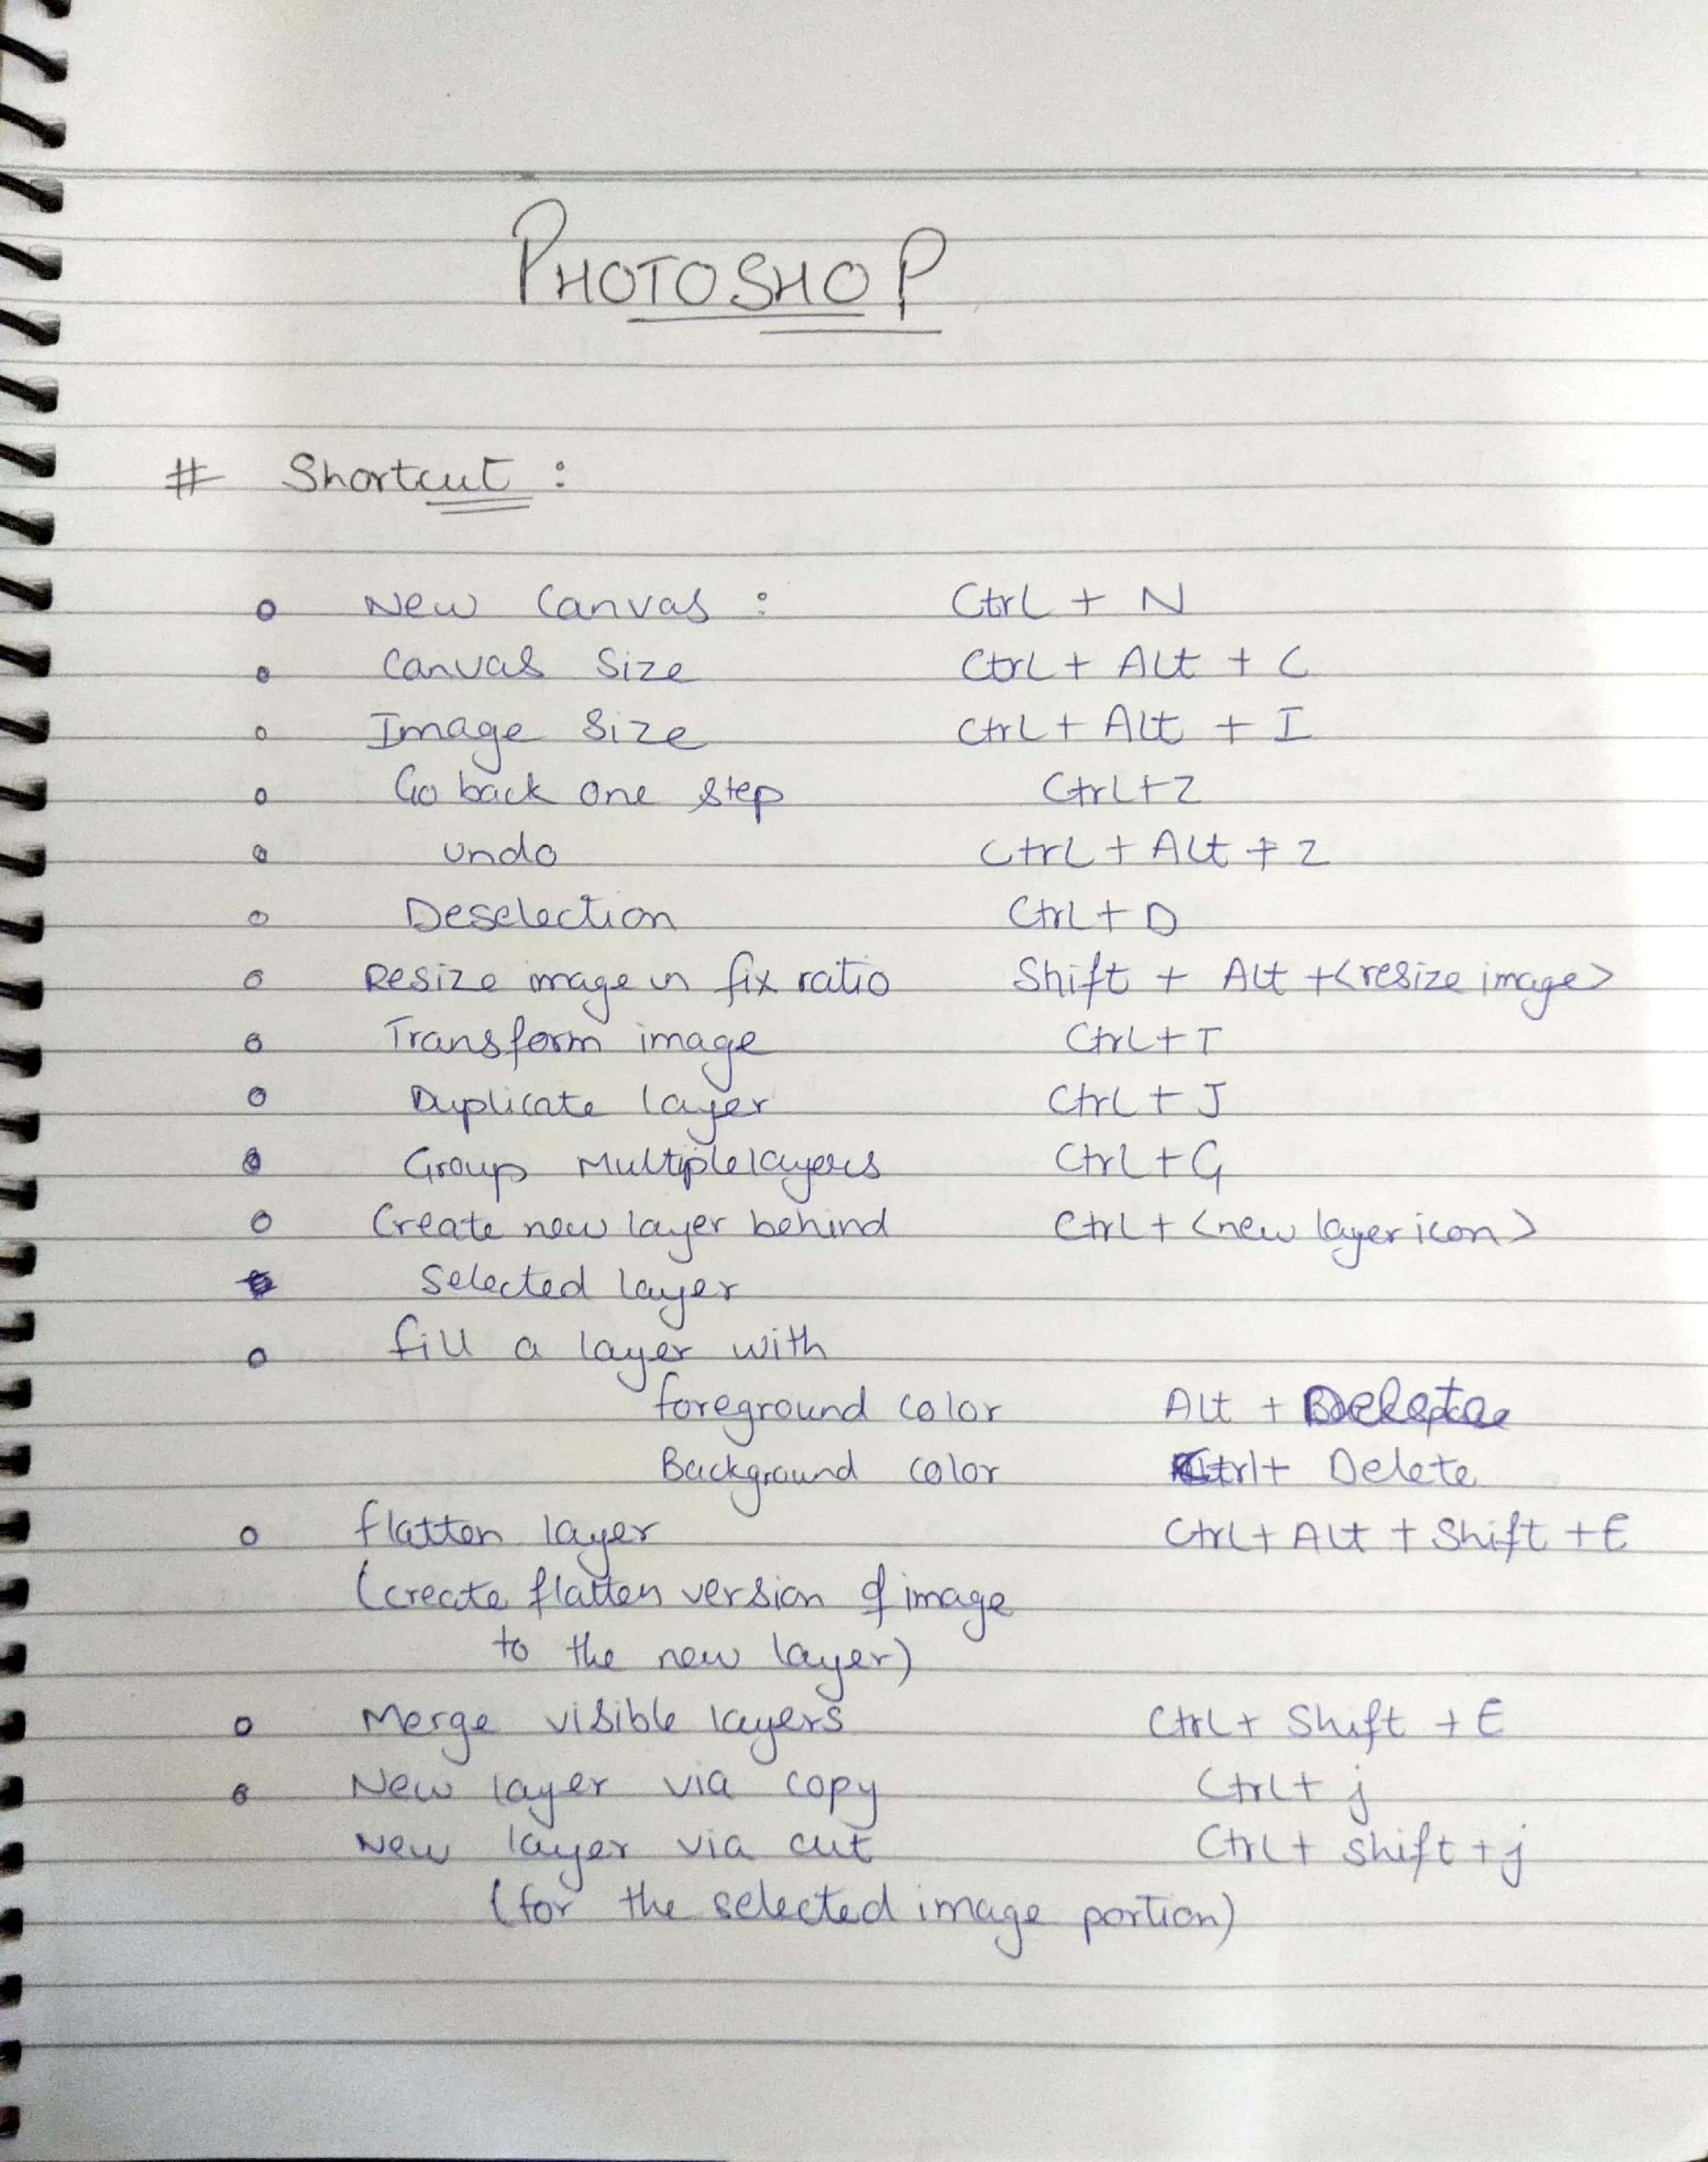 PHOTOSHOP
# Shortcut :
New Canvas : Ctrl + N
Canvas Size Ctrl + Alt + C
Image Size Ctrl + Alt + I
Go back one step Ctrl+Z
Undo Ctrl + Alt + Z
Deselection Ctrl + D
Resize image in fix ratio Shift + Alt + <resize image>
Transform image Ctrl+T
Duplicate layer Ctrl + J
Group Multiple layers Ctrl + G
Create new layer behind Ctrl + <new layer icon>
Selected layer
fill a layer with
foreground color Alt + Delete
Background color Ctrl + Delete
flatten layer Ctrl + Alt + Shift + E
(create flatten version of image
to the new layer)
Merge visible layers Ctrl + Shift + E
New layer via copy Ctrl + j
New layer via cut Ctrl + shift + j
(for the selected image portion)